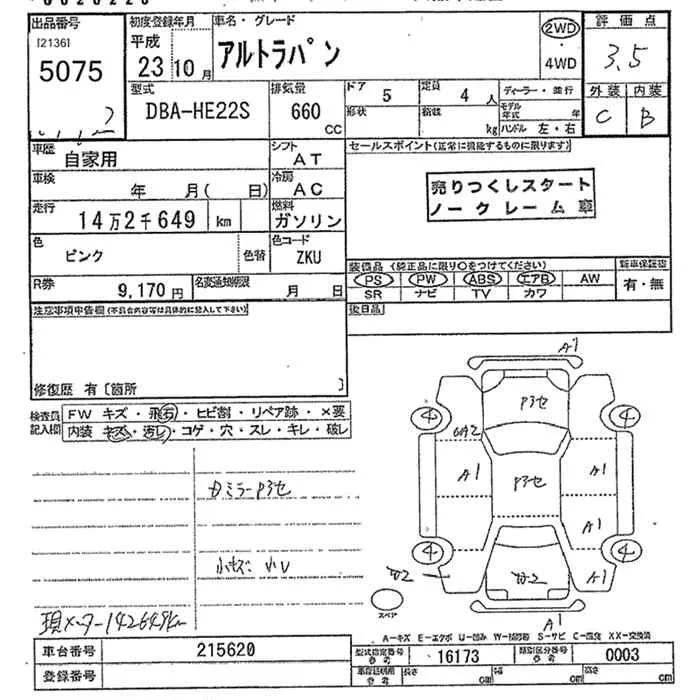 出品番号 初度登録年月 車名・グレード 2WD 評価点
[2136] 平成 アルトラパン 3.5
5075 23 10月 4WD
型式 排気量 ドア 5 定員 4人 ディーラー・並行 外装 内装
DBA-HE22S 660 CC 形状 kg モデル年式 年 ハンドル 左・右 C B
車歴 自家用 シフト AT セールスポイント(正常に機能するものに限ります)
車検 年 月( 日) 冷房 AC 売りつくしスタート
走行 14万2千649 km 燃料 ガソリン ノークレーム車
色 ピンク 色替 色コード ZKU
装備品 (純正品に限り○をつけてください) 新車保証書
R券 9,170円 名変通知期限 月 日 PS PW ABS エアB AW 有・無
SR ナビ TV カワ
注意事項申告欄(不具合内容等は具体的に記入して下さい) 後日品
修復歴 有〔箇所 〕
検査員 FW キズ・飛石・ヒビ割・リペア跡・×要
記入欄 内装 キズ・汚し・コゲ・穴・スレ・キレ・破レ
A1
4 4
A1 A1
A1
4 4
A1
スペア
A1
現メーター142649km
A-キズ E-エクボ U-凹み W-補修跡 S-サビ C-腐食 XX-交換済
車台番号 215620 型式指定番号 参考 16173 類別区分番号 参考 0003
登録番号 参考 長さ cm 幅 cm 高さ cm